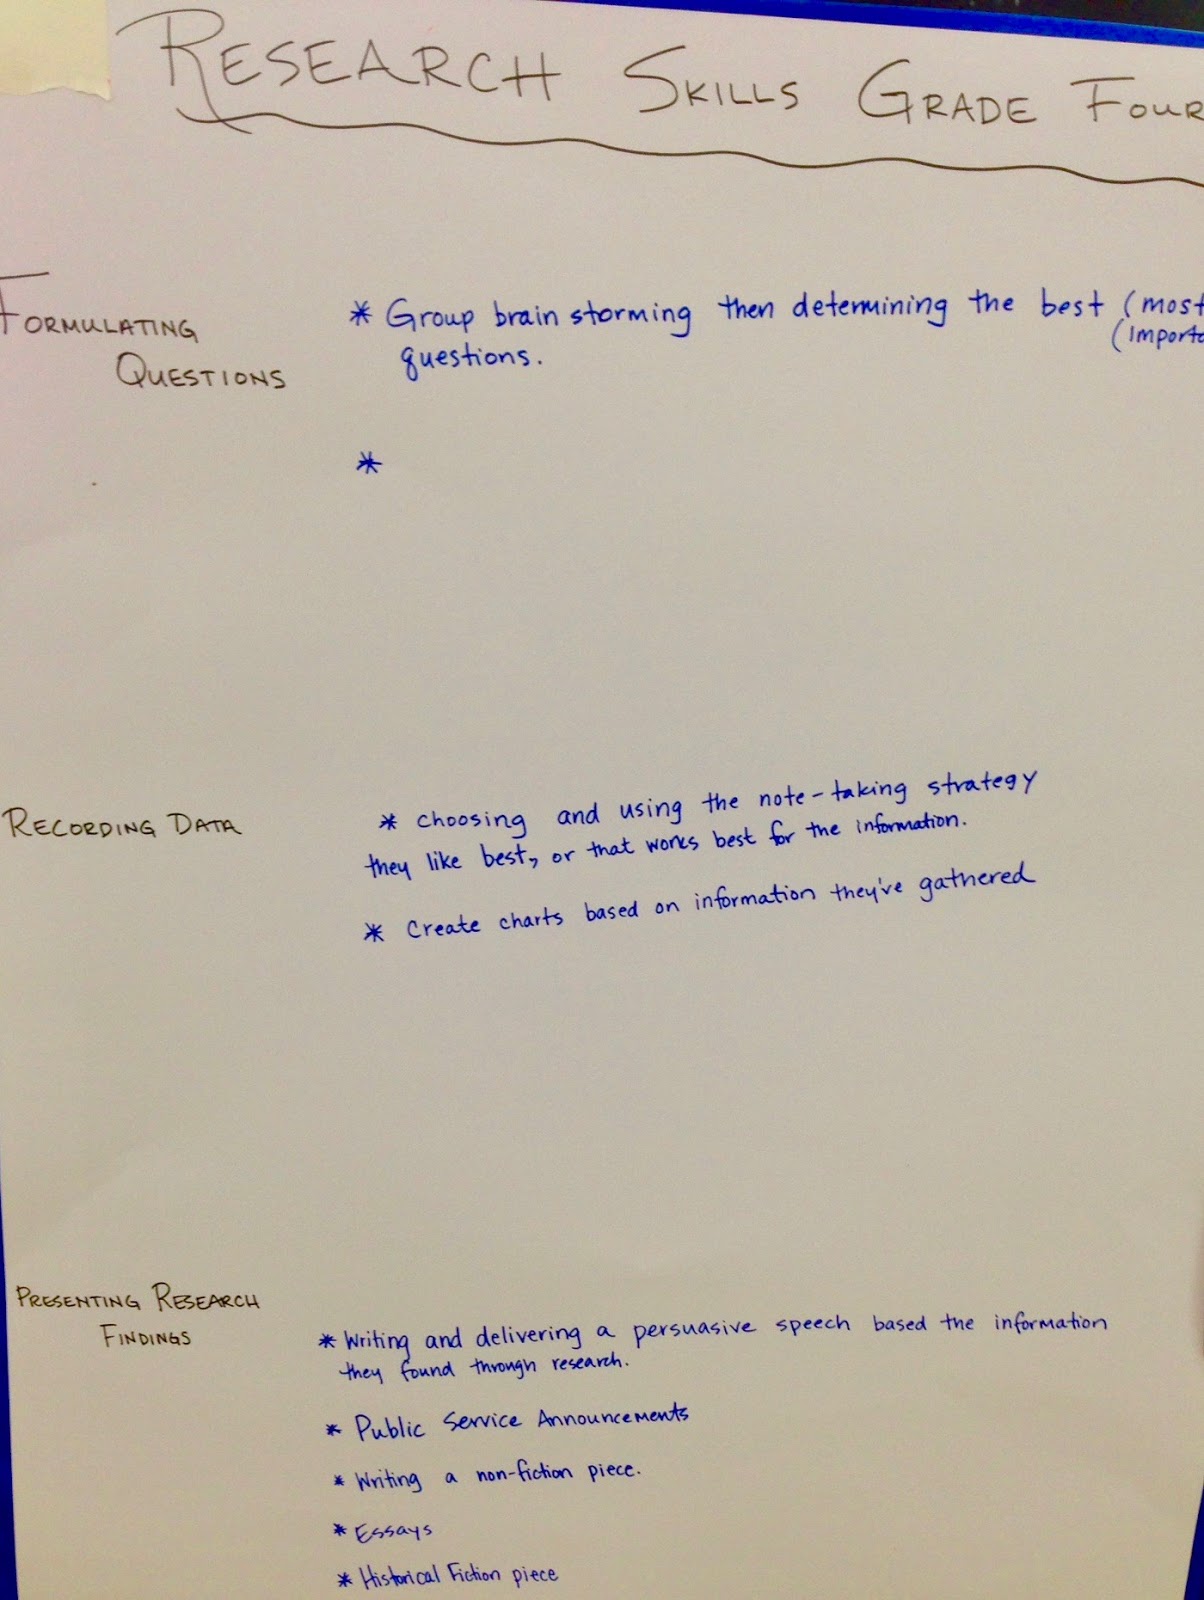 RESEARCH SKILLS GRADE FOUR
FORMULATING
QUESTIONS
* Group brain storming then determining the best (most
(importa
questions.
*
RECORDING DATA
* choosing and using the note-taking strategy
they like best, or that works best for the information.
* Create charts based on information they've gathered
PRESENTING RESEARCH
FINDINGS
* Writing and delivering a persuasive speech based the information
they found through research.
* Public Service Announcements
* Writing a non-fiction piece.
* Essays
* Historical Fiction piece